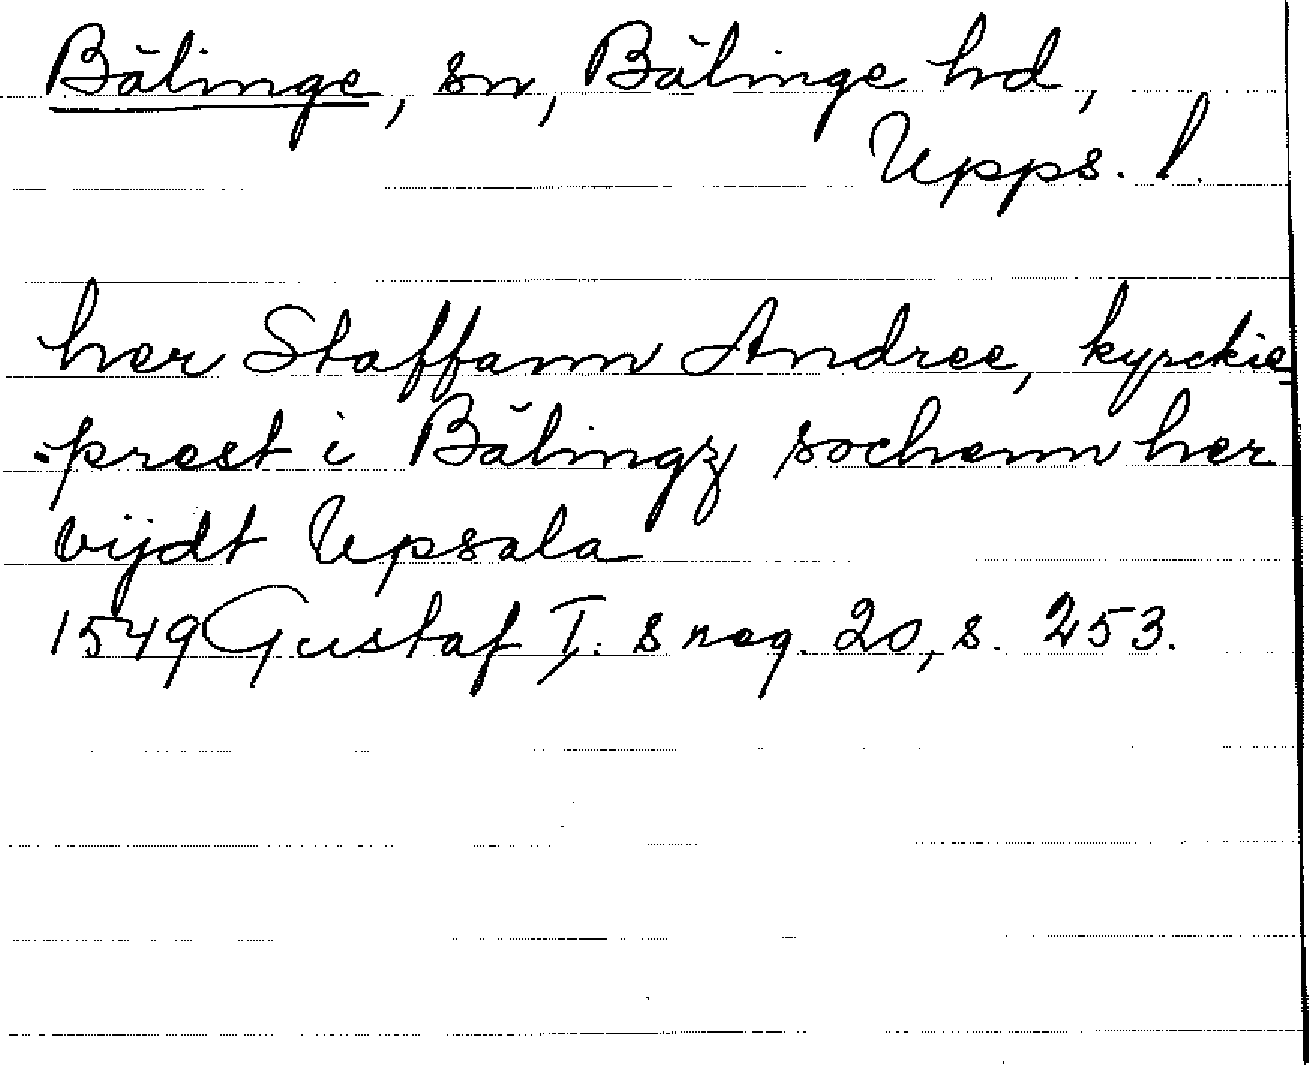 Bälinge, sn, Bälinge hd,
Upps. l.
her Staffann Andree, kyrckie
-prest i Bälingz sochenn her
vijdt Upsala
1549 Gustaf I:s reg. 20, s. 253.